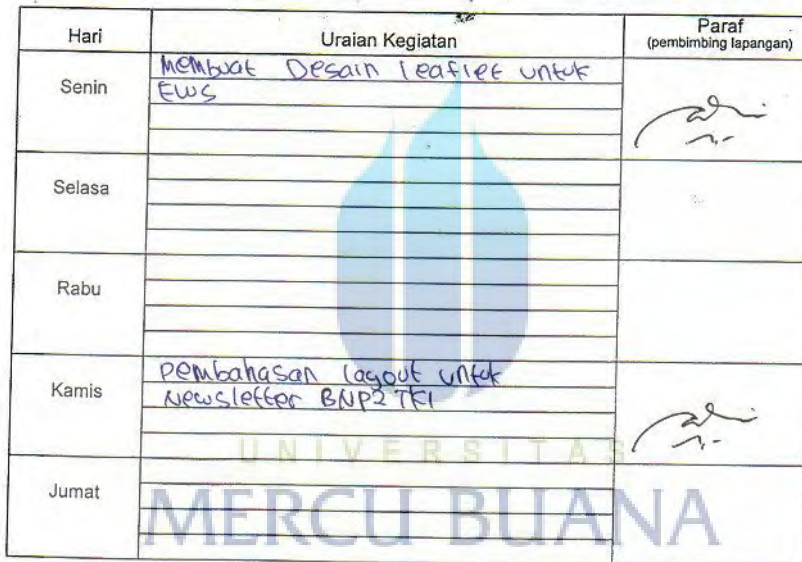 Hari Uraian Kegiatan Paraf
(pembimbing lapangan)
Senin
Membuat Desain leaflet untuk
EWS
Selasa
Rabu
Kamis
pembahasan layout untuk
Newsletter BNP2TKI
UNIVERSITAS
Jumat
MERCU BUANA